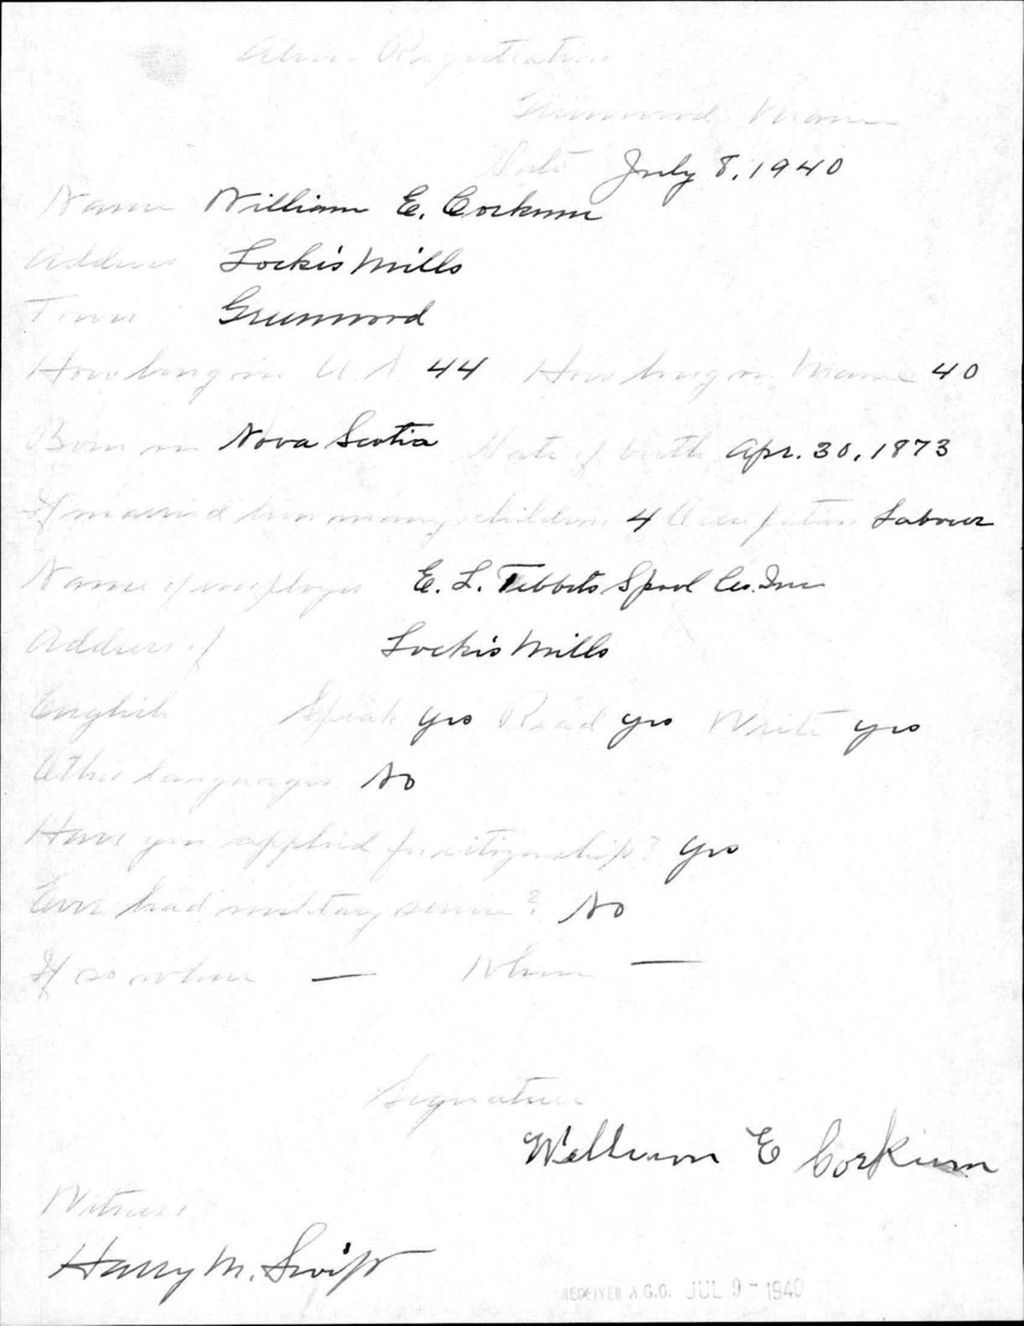 Alien Registration
Greenwood Maine
Date July 8, 1940
Name William E. Corkum
Address Locke's Mills
Town Greenwood
How long in U.S. 44 How long in Maine 40
Born in Nova Scotia Date of birth Apr. 30, 1873
If married how many children 4 Occupation Labourer
Name of employer E. L. Tebbets Spool Co. Inc
Address of Locke's Mills
English Speak yes Read yes Write yes
Other languages No
Have you applied for citizenship? Yes
Ever had military service? No
If so where — When —
Signature
William E Corkum
Witness
Harry M. Swift
RECEIVED A.G.O. JUL 9 - 1940